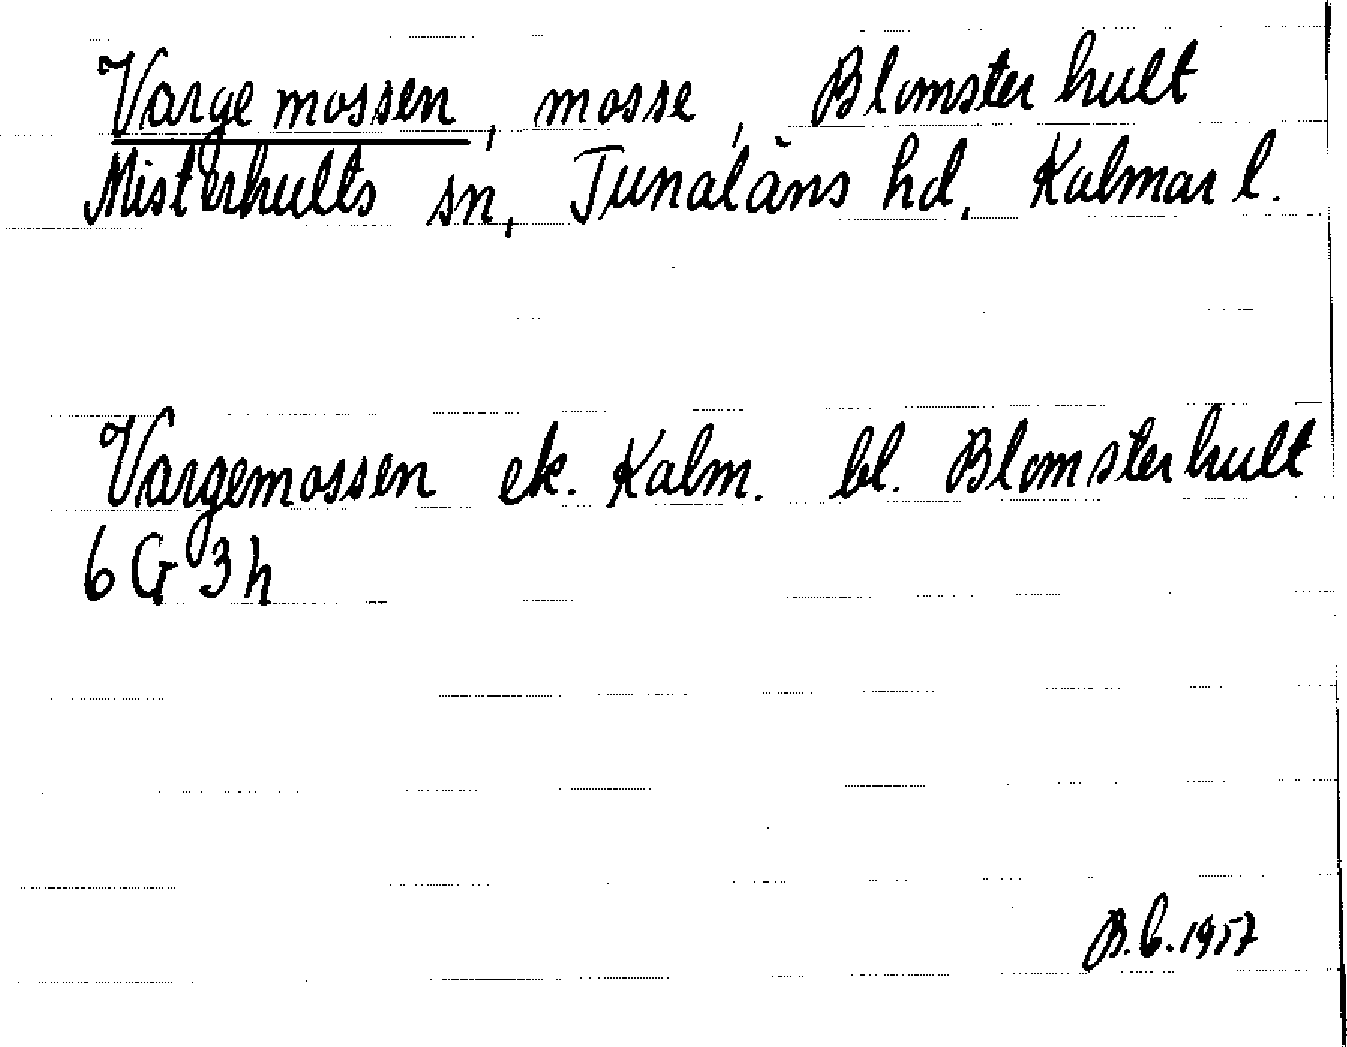 Vargemossen, mosse, Blomsterhult
Misterhults sn, Tunaläns hd, Kalmar l.
Vargemossen ek. Kalm. bl. Blomsterhult
6 G 3 h
B.b.1957